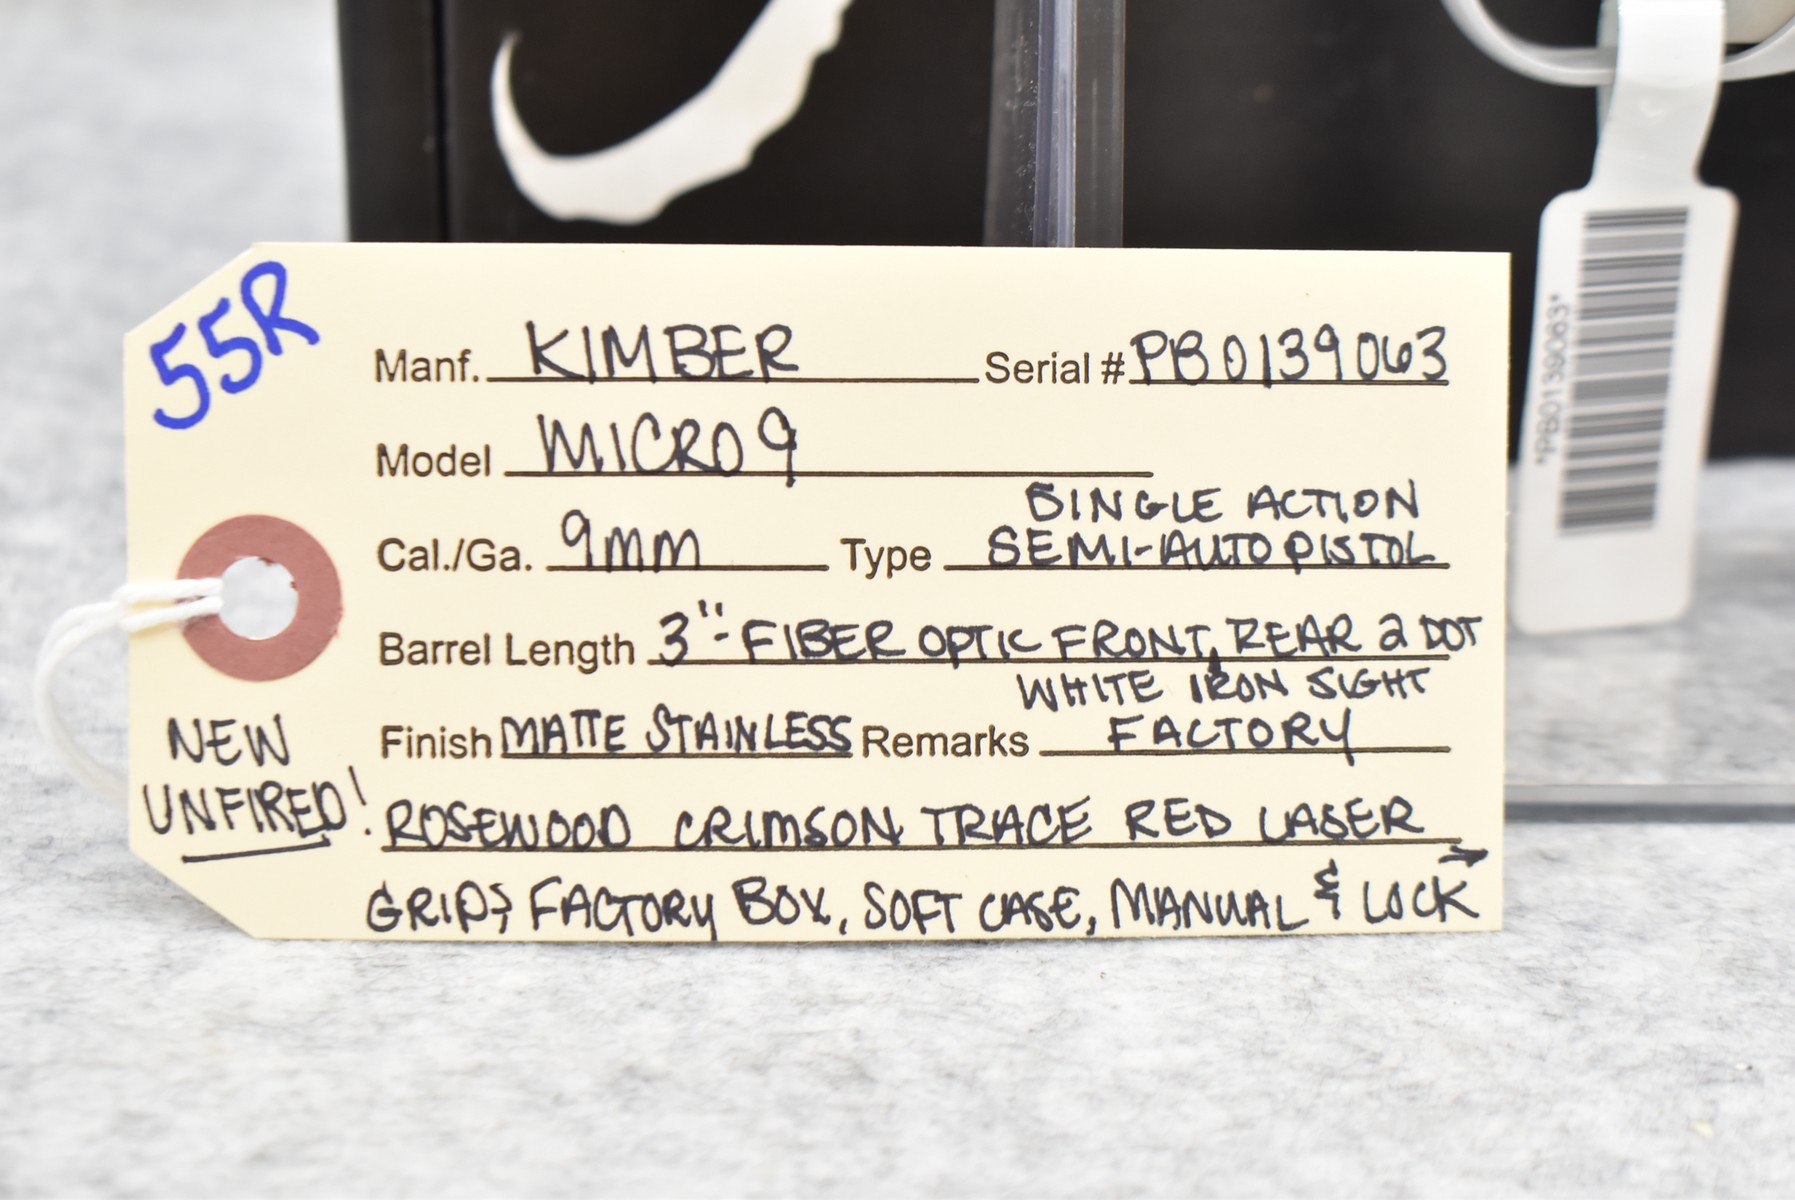 55R
Manf. KIMBER Serial # PB0139063
Model MICRO 9
SINGLE ACTION
Cal./Ga. 9mm Type SEMI-AUTO PISTOL
Barrel Length 3"- FIBER OPTIC FRONT, REAR 2 DOT
WHITE IRON SIGHT
Finish MATTE STAINLESS Remarks FACTORY
NEW
UNFIRED!
ROSEWOOD CRIMSON TRACE RED LASER
GRIPS, FACTORY BOX, SOFT CASE, MANUAL & LOCK →
*PB0139063*